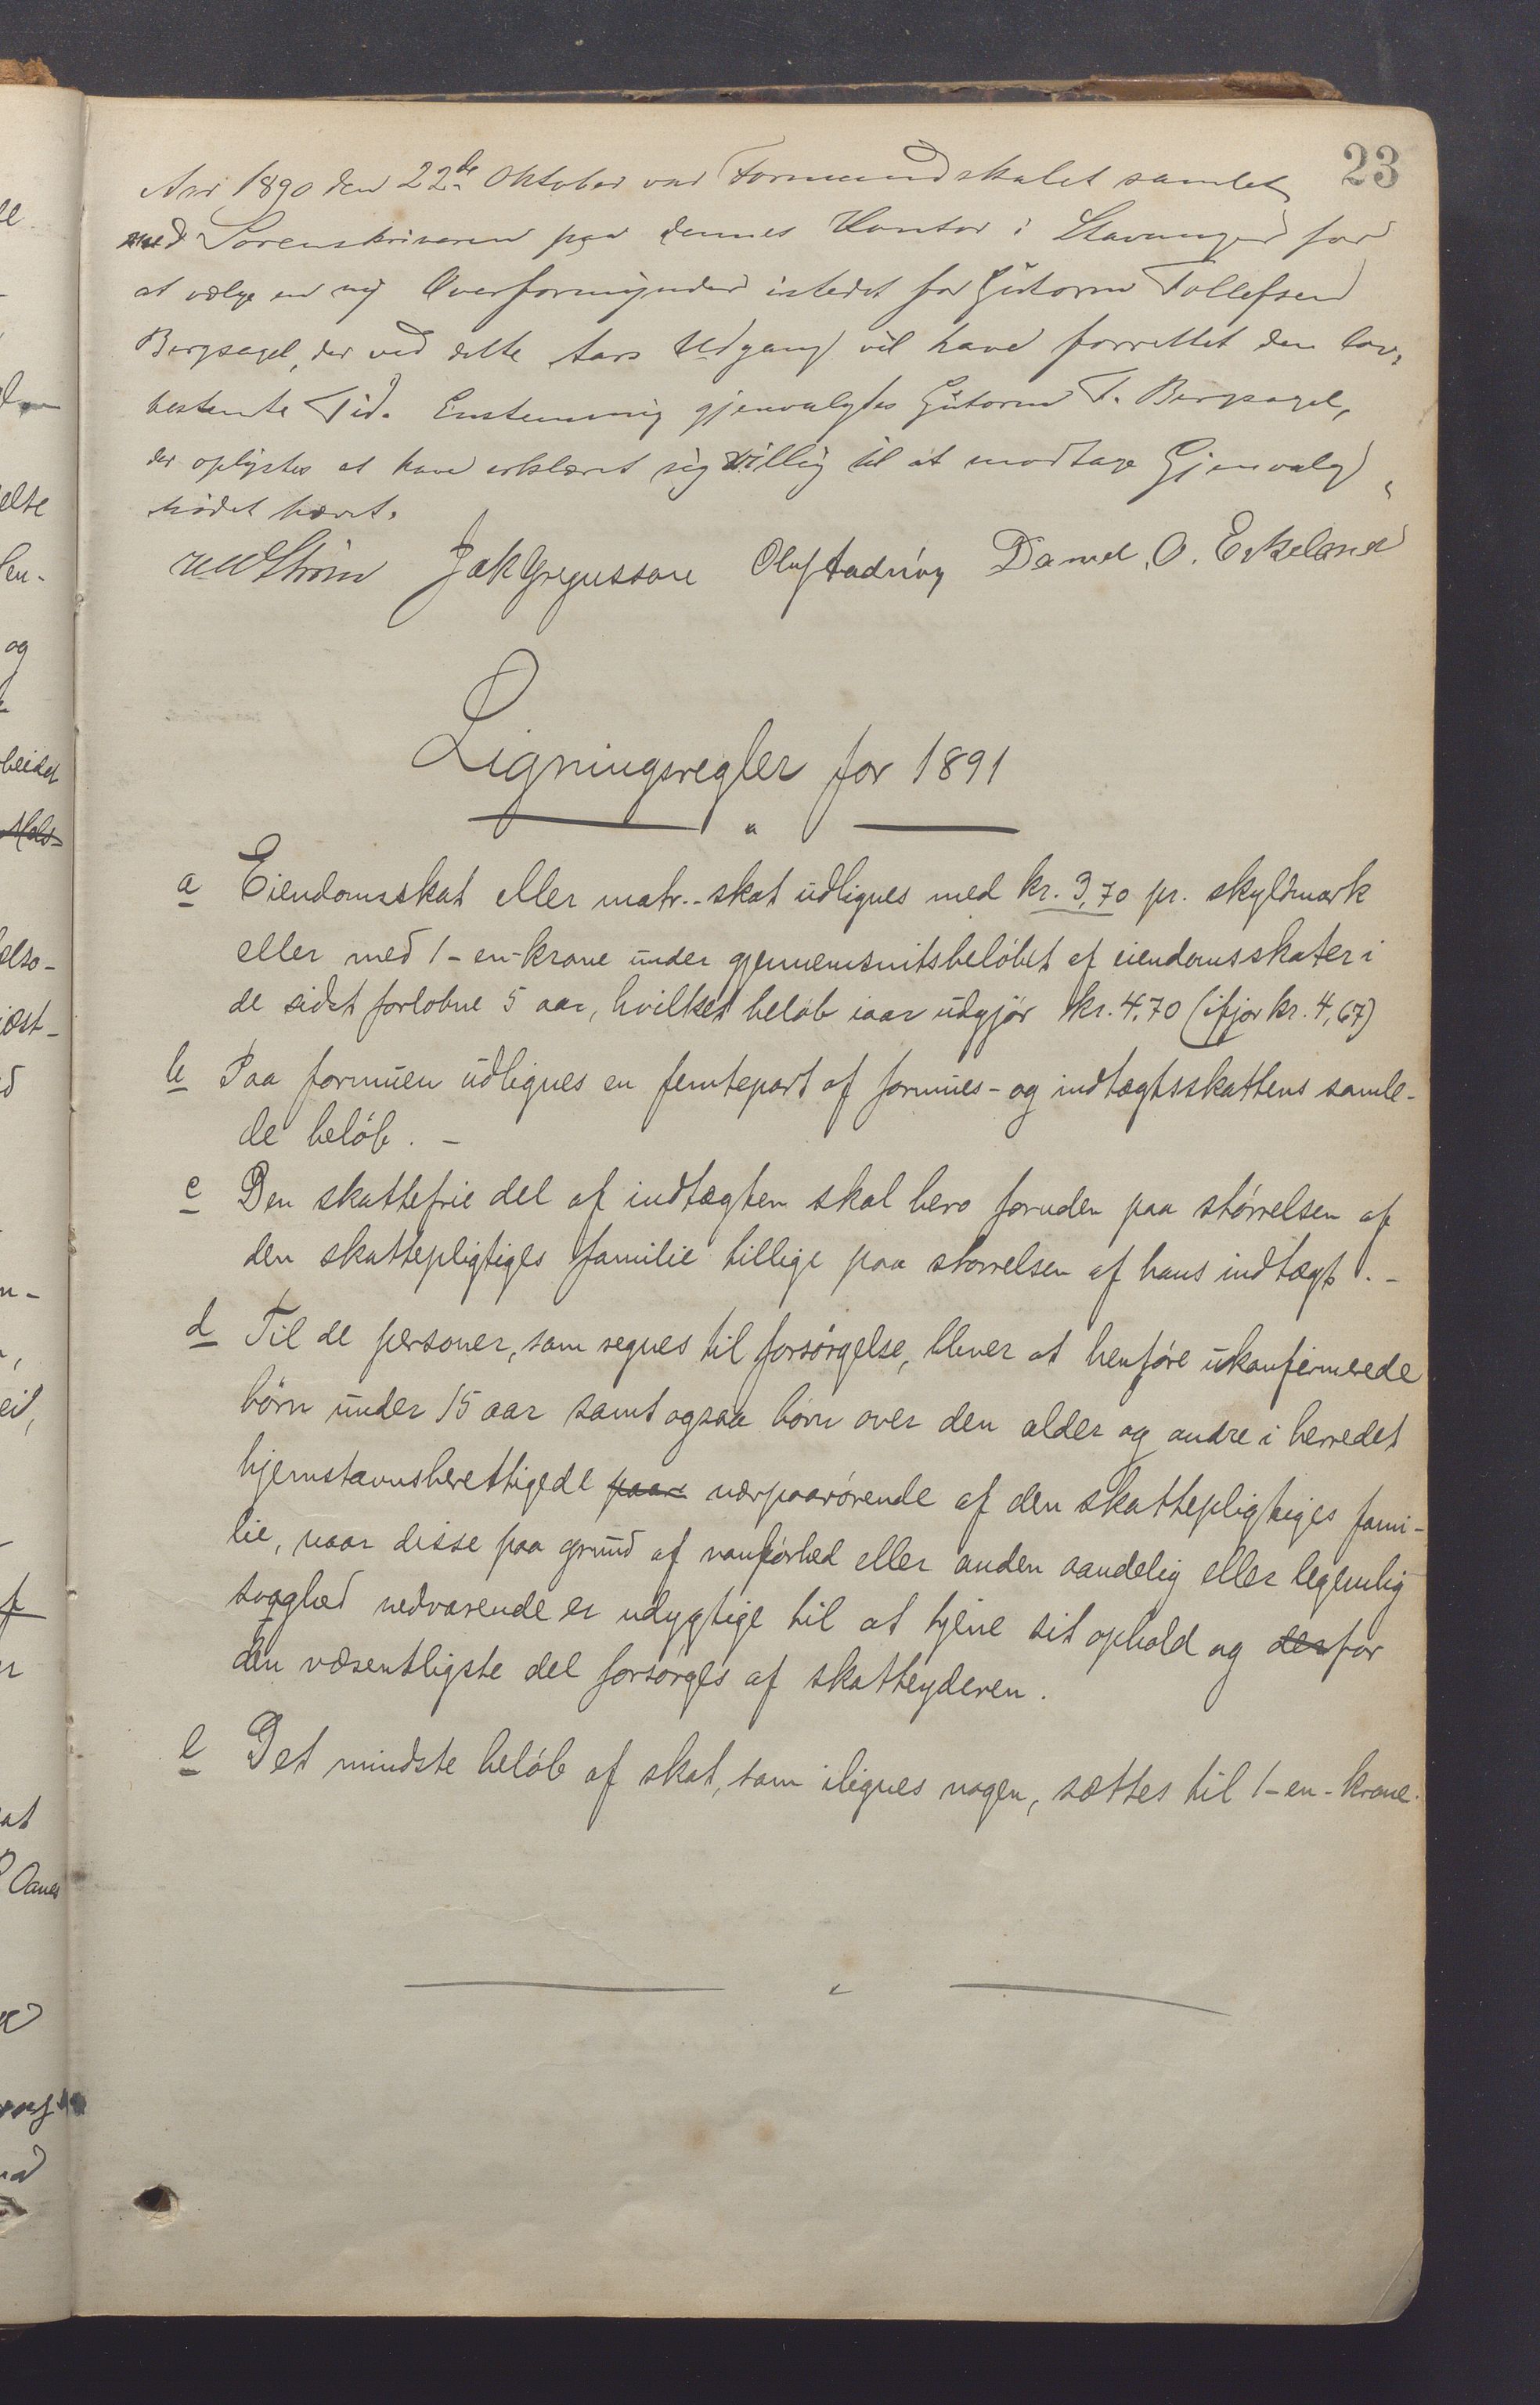 23
Aar 1890 den 22de Oktober var Formandskabet samlet
med Sorenskriveren paa dennes Kontor i Stavanger for
at vælge en ny Overformynder istedet for Gutorm Tollefsen
Bergsagel, der ved dette Aars Udgang vil have forrettet den lov-
bestemte Tid. Enstemmig gjenvalgtes Gutorm T. Bergsagel,
der oplystes at have erklæret sig villig til at modtage Gjenvalg.
Mødet hævet.
Strøm Jak Gregussøn Oluf Daniel O. Eikeland
Ligningsregler for 1891
a Eiendomsskat eller matr.-skat udlignes med kr. 3,70 pr. skyldmark
eller med 1-en-krone under gjennemsnitsbeløbet af eiendomsskater i
de sidst forløbne 5 aar, hvilket beløb iaar udgjør kr. 4,70 (ifjor kr. 4,67)
b Paa formuen udlignes en femtepart af formues- og indtægtsskattens samle-
de beløb. -
c Den skattefrie del af indtægten skal bero foruden paa størrelsen af
den skattepligtiges familie tillige paa størrelsen af hans indtægt. -
d Til de personer, som regnes til forsørgelse, bliver at henføre ukonfirmerede
børn under 15 aar samt ogsaa børn over den alder og andre i herredet
hjemstavnsberettigede paar nærpaarørende af den skattepligtiges fami-
lie, naar disse paa grund af vanførhed eller anden aandelig eller legemlig
svaghed vedvarende er udygtige til at tjene sit ophold og derfor
den væsentligste del forsørges af skatteyderen.
e Det mindste beløb af skat, som ilignes nogen, sættes til 1-en-krone.